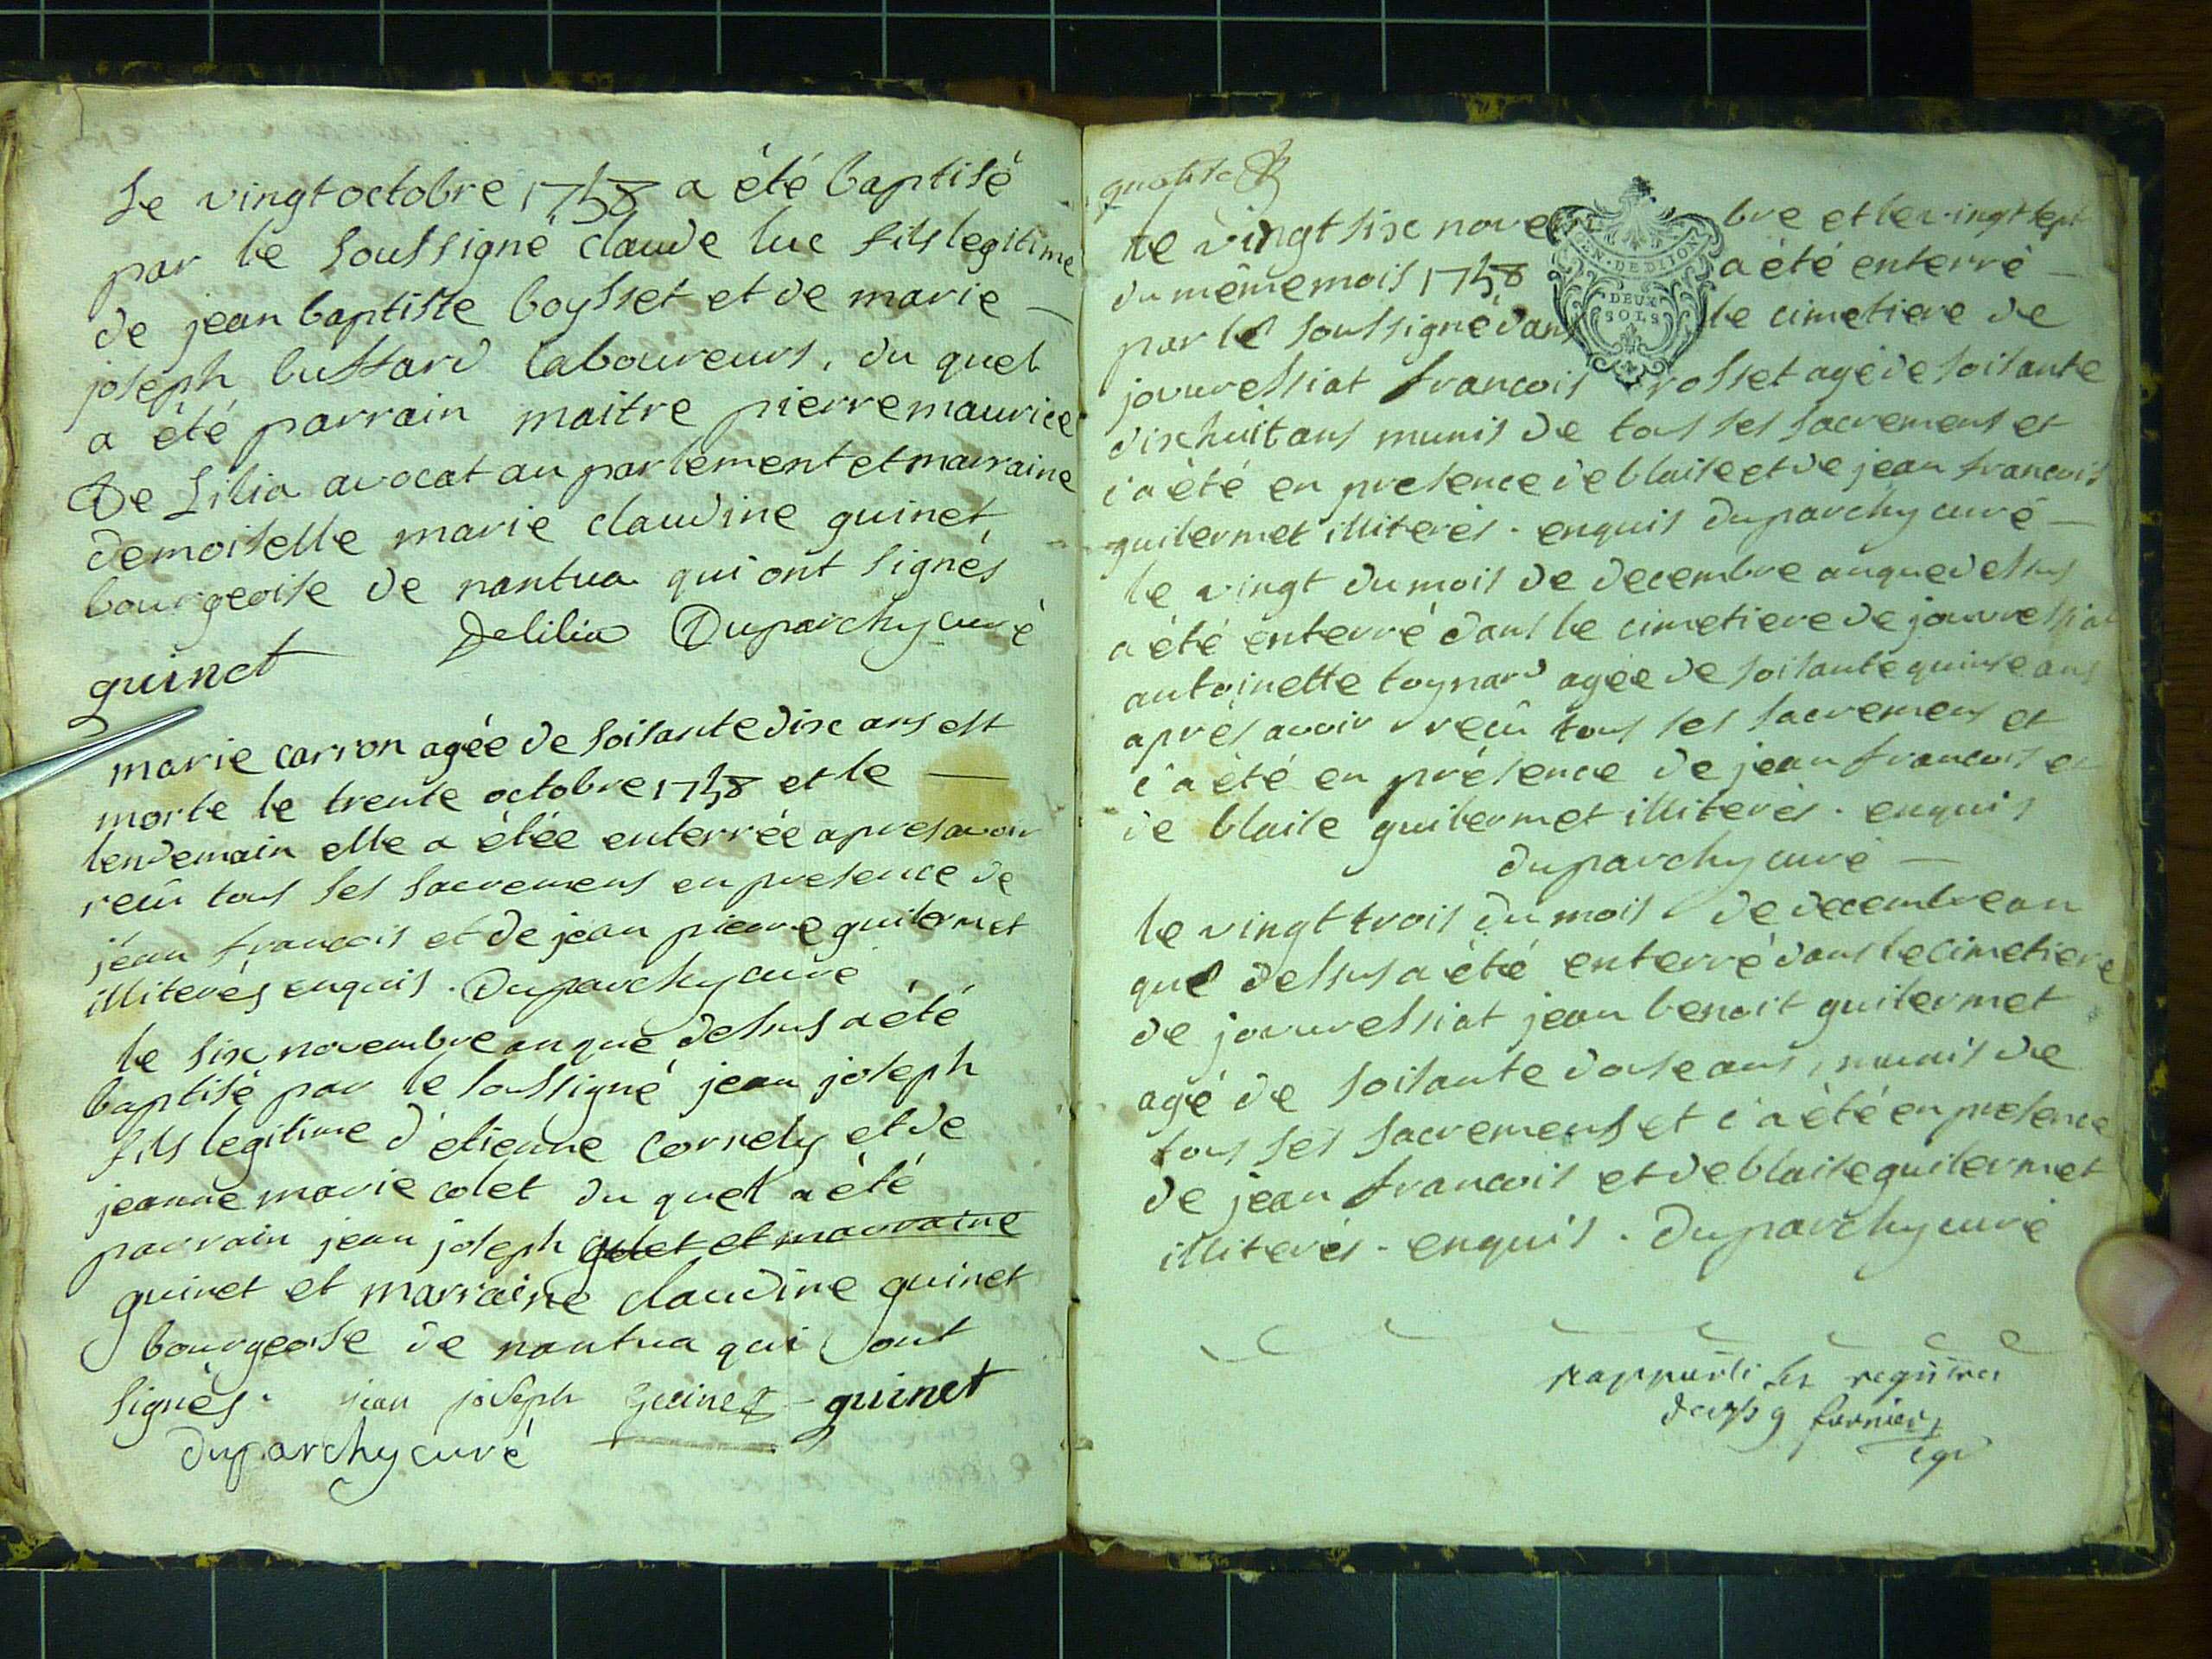 Le vingt octobre 1758 a été baptisé
par le soussigné claude luc fils legitime
de jean baptiste boysset et de marie
joseph bussard laboureurs, du quel
a été parrain maitre pierre maurice
De Lilia avocat au parlement et marraine
demoiselle marie claudine guinet
bourgeoise de nantua qui ont signés
Delilia Duparchy curé
guinet
marie carron agée de soisante dix ans est
morte le trente octobre 1758 et le
lendemain elle a étée enterrée apres avoir
reçu tous ses sacremens en presence de
jean francois et de jean pierre guilermet
illiterés enquis. Duparchy curé
le six novembre an que dessus a été
baptisé par le soussigné jean joseph
fils legitime d'etienne cornely et de
jeanne marie colet du quel a été
parrain jean joseph et marraine
guinet et marraine claudine guinet
bourgeoise de nantua qui ont
signés. jean joseph guinet guinet
duparchy curé
le vingt six novembre et le vingt sept
du même mois 1758 a été enterré
par le soussigné dans le cimetiere de
jouvressiat francois rosset agé de soisante
dix huit ans munis de tous ses sacremens et
c'a été en presence de blaise et de jean francois
guilermet illiterés. enquis duparchy curé
GEN. DE DIJON
DEUX
SOLS
le vingt du mois de decembre an que dessus
a été enterré dans le cimetiere de jouvressiat
antoinette toynard agée de soisante quinse ans
aprés avoir reçu tous ses sacremens et
c'a été en présence de jean francois et
de blaise guilermet illiterés. enquis
duparchy curé
le vingt trois du mois de decembre an
que dessus a été enterré dans le cimetiere
de jouvressiat jean benoit guilermet
agé de soisante douse ans, munis de
tous ses sacremens et c'a été en presence
de jean francois et de blaise guilermet
illiterés. enquis. Duparchy curé